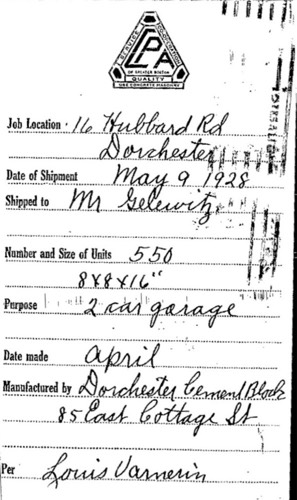 SERVICE
CPA
OF GREATER BOSTON
QUALITY
USE CONCRETE MASONRY
Job Location · 16 Hubbard Rd
Dorchester
Date of Shipment May 9 1928
Shipped to Mr Gelewitz
Number and Size of Units 550
8x8x16"
Purpose 2 car garage
Date made april
Manufactured by Dorchester Cement Block
85 East Cottage St
Per Louis Varnerin